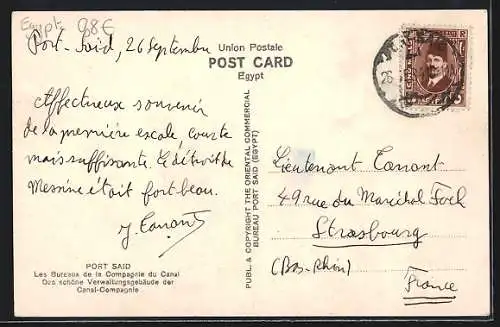 Egypt 98€
Port-Said, 26 Septembre
Union Postale
POST CARD
Egypt
Affectueux souvenir
de la première escale, courte
mais suffisante. Le détroit de
Messine était fort beau.
J. Tanant
PORT SAID
Les Bureaux de la Compagnie du Canal
Das schöne Verwaltungsgebäude der
Canal-Compagnie
PUBL. & COPYRIGHT THE ORIENTAL COMMERCIAL
BUREAU PORT SAID (EGYPT)
Lieutenant Tanant
49 rue du Maréchal Foch
Strasbourg
(Bas-Rhin)
France